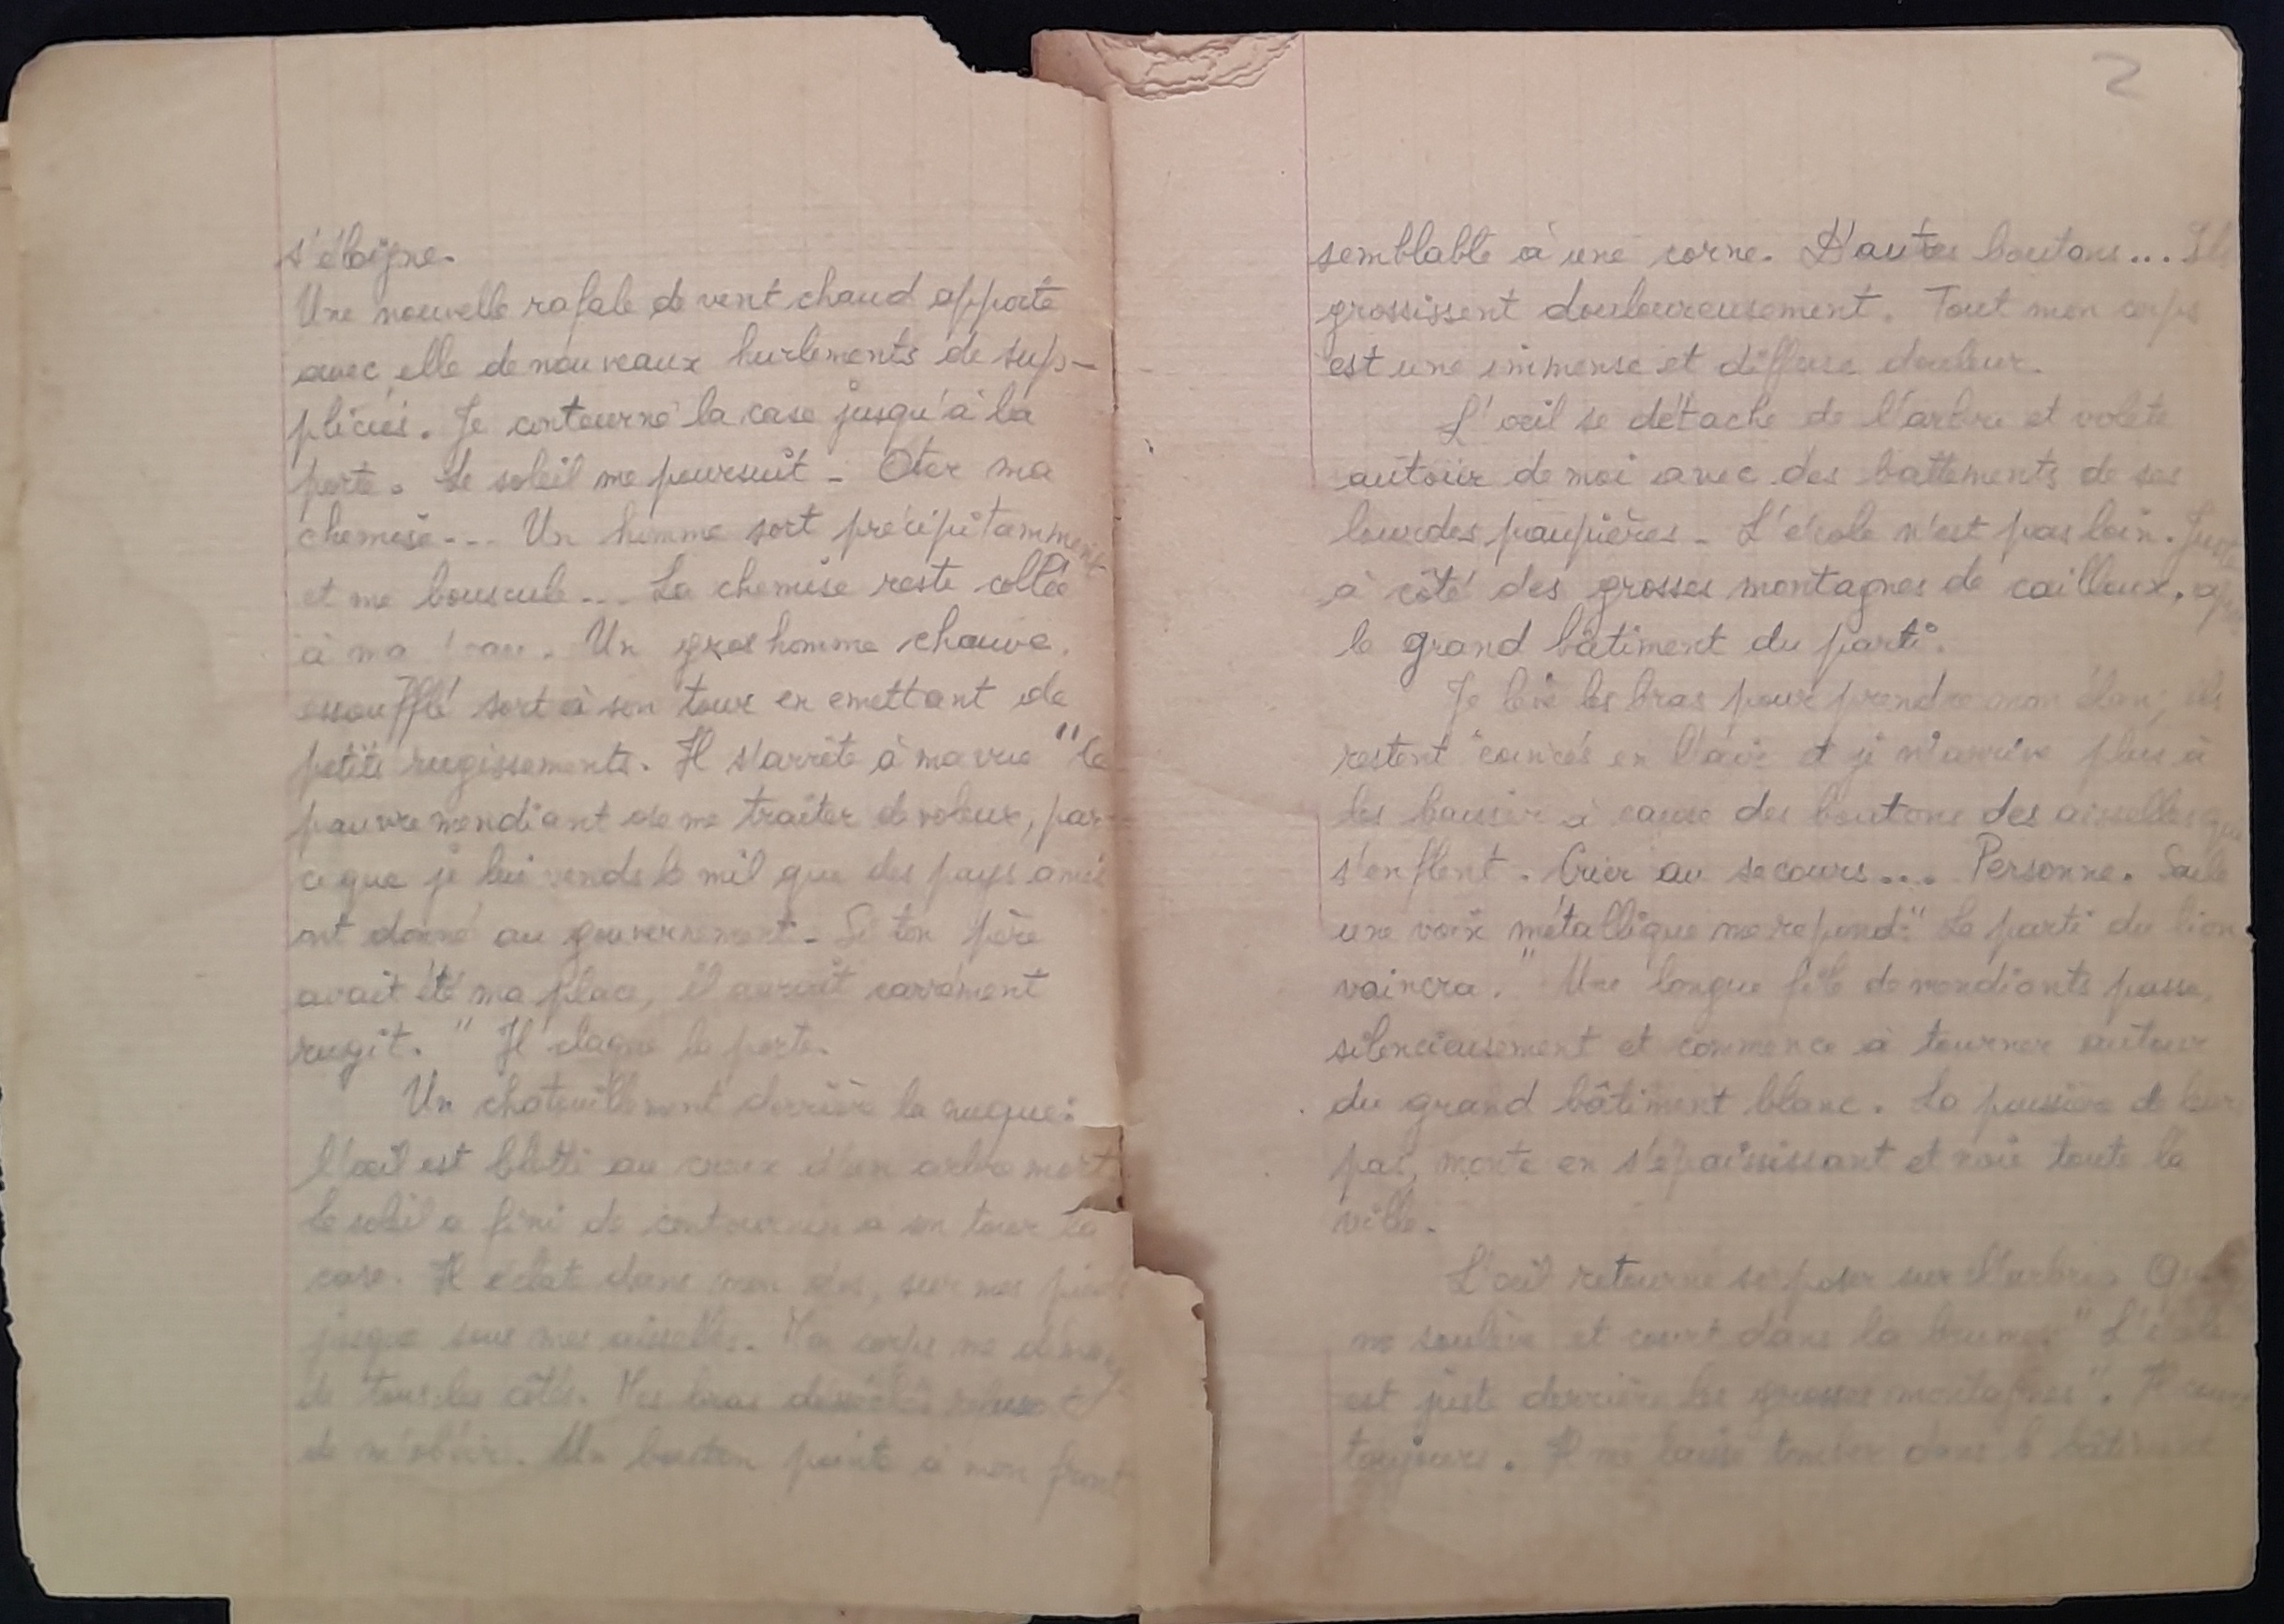 s'éloigne.
Une nouvelle rafale de vent chaud apporte
avec elle de nouveaux hurlements de sup-
pliciés. Je contourne la case jusqu'à la
porte. Le soleil me poursuit - Oter ma
chemise... Un homme sort précipitamment
et me bouscule... La chemise reste collée
à ma peau. Un gros homme chauve,
essoufflé sort à son tour en emettant de
petits rugissements. Il s'arrête à ma vue "Ce
pauvre mendiant ose me traiter de voleur, par-
ce que je lui vends le mil que des pays amis
ont donné au gouvernement - Si ton père
avait été ma place, il aurait carrément
rugit." Il claque la porte.
Un chatouillement derrière la nuque:
l'œil est blotti au creux d'un arbre mort
le soleil a fini de contourner à son tour la
case. Il éclate dans mon dos, sur mes pieds
jusque sous mes aisselles. Mon corps me
de tous les côtés. Mes bras desséchés refusent
de m'obéir. Un bouton pointe à mon front
2
semblable à une corne. D'autres boutons... Ils
grossissent douloureusement. Tout mon corps
est une immense et diffuse douleur.
L'œil se détache de l'arbre et volète
autour de moi avec des battements de ses
lourdes paupières - L'école n'est pas loin. Juste
à côté des grosses montagnes de cailloux, après
le grand bâtiment du parti.
Je lève les bras pour prendre mon élan; ils
restent coincés en l'air et je n'arrive plus à
les baisser à cause des boutons des aisselles qui
s'enflent. Crier au secours.... Personne. Seule
une voix métallique me repond: "Le parti du lion
vaincra." Une longue file de mendiants passe,
silencieusement et commence à tourner autour
du grand bâtiment blanc. La poussière de leurs
pas, monte en s'épaississant et noie toute la
ville.
L'œil retourne se poser sur l'arbre.
me soulève et court dans la brume. "L'école
est juste derrière les grosses montagnes". Il court
toujours. Il me laisse tomber dans le bâtiment